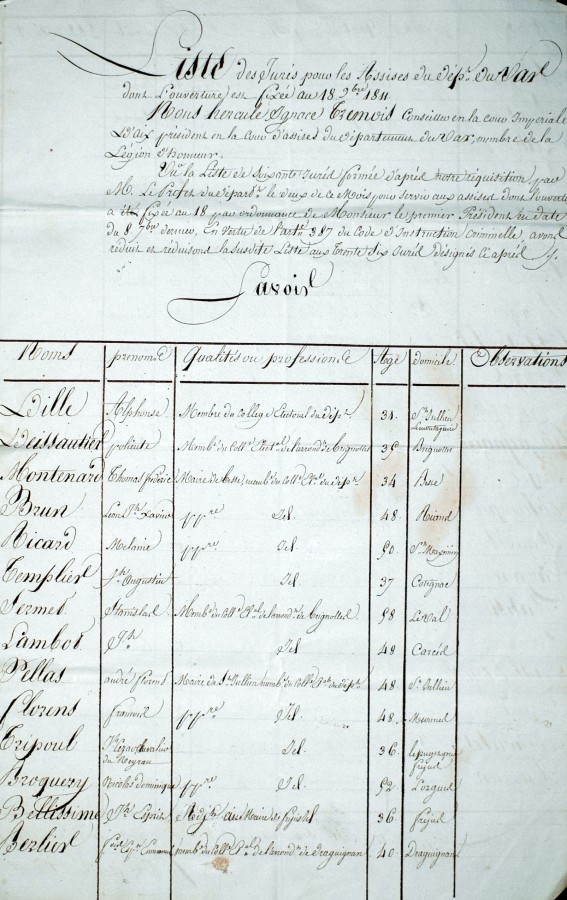 Liste des Jurés pour les Assises du dépt. du Var
dont l'ouverture est fixée au 18 9bre 1811
Nous hercule Ignace Conseiller en la cour Impériale
d'aix président en la Cour d'assises du département du Var, membre de la
Légion d'honneur.
Vu la Liste de Soixante Jurés formée d'après notre réquisition, par
M. Le Préfet du dépardt. le deux de ce Mois pour servir aux assises dont l'ouverture
a été fixée au 18 par ordonnance de Monsieur le premier Président en date
du 8 7bre dernier, En Vertu de l'artn. 387 du Code d'Instruction Criminelle, avons
réduit et réduisons la susdite Liste aux Trente Six Jurés désignés ci après
Savoir
Noms prenoms Qualités ou professions Age domicile Observations
Lille Alphonse Membre du College Electoral du dépt. 34. St. Jullien
polinte Memb. du Coll. Elect. de l'arrond. de Brignolles 35 Brignolles
Montenard Thomas fréderic Maire de Besse, memb. du Coll. El. du dépt. 34 Besse
Brun Leon Jh. pre. Id. 48. Rians
Ricard Melaine pre. Id. 50. St. Maximin
Templier Jh. Augustin Id. 37 Cotignac
Fermed Stanislas Memb. du Coll. El. de l'arrond. de Brignolles 58 Le Val
Lambot Jh. Id 48 Carcés
Pellas andré florens Maire de St. Jullien memb. du Coll. El. du dépt. 48 St. Jullien
florens francois pre. Id. 48.
Tripoul Jh. chevalier Id. 36. le puget
du fréjus
Broquery Nicolas dominique pre. Id. 52. Lorgues
Bellissime Jh. Esprit Adjt. au Maire de frejus Id. 36. frejus
Berlier Emmanuel memb. du Coll. El. de l'arrond. de draguignan 40. Draguignan